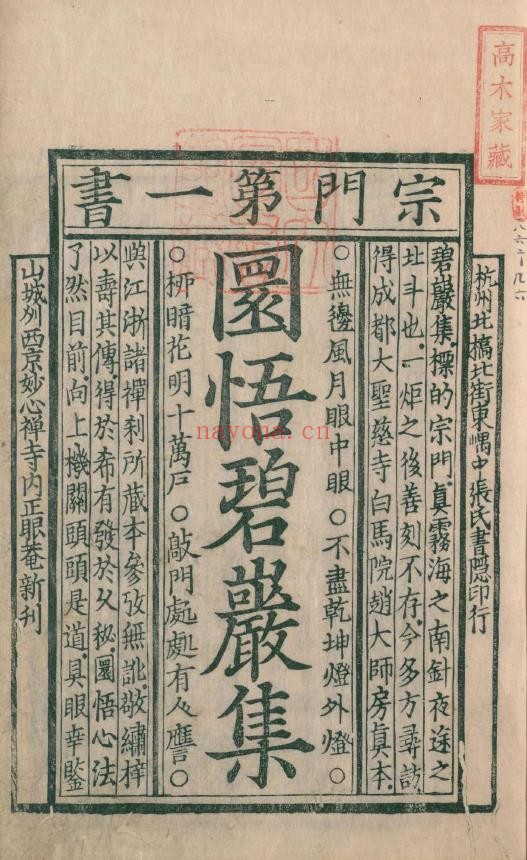 高木家藏
宗門第一書
杭州北橋北街東嵎中張氏書隠印行
碧巖集標的宗門眞霧海之南針夜途之
北斗也一炬之後善刻不存今多方尋訪
得成都大聖慈寺白馬院趙大師房眞本
○無邊風月眼中眼○不盡乾坤燈外燈○
圜悟碧巖集
○柳暗花明十萬戸○敲門處處有人譍○
與江浙諸禪刹所藏本參攷無訛敬繡梓
以壽其傳得於希有發於久秘圜悟心法
了然目前向上機關頭頭是道具眼幸鑒
山城州西京妙心禅寺内正眼菴新刊
navona.cn